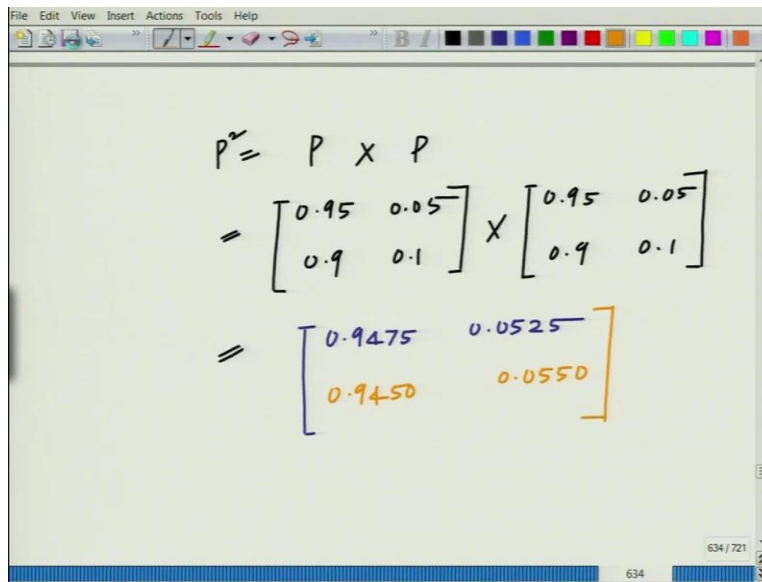 File Edit View Insert Actions Tools Help
B I
P² = P X P
= [0.95 0.05] X [0.95 0.05]
[0.9 0.1] [0.9 0.1]
= [0.9475 0.0525]
[0.9450 0.0550]
634 / 721
634